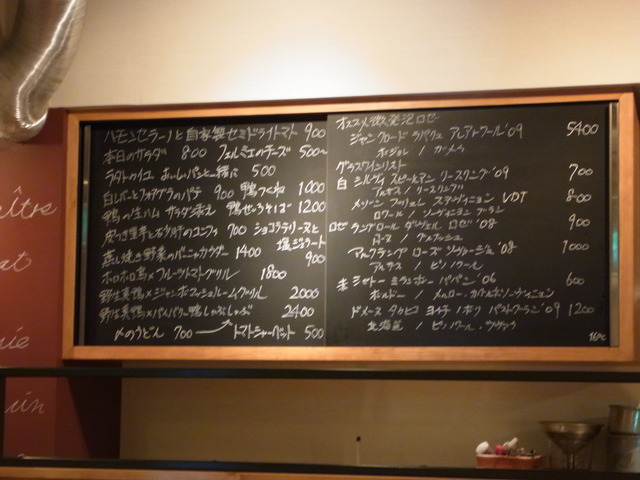 ハモンセラーノと自家製セミドライトマト 900
本日のサラダ 800 フェルミエのチーズ 500〜
ラタトゥイユ おいしいパンと一緒に 500
白レバーとフォアグラのパテ 900 鴨つくね 1000
鴨の生ハム サラダ添え 鴨せいろそば 1200
皮つき里芋と砂肝のコンフィ 700 ショコラテリーヌと
塩ジェラート
蒸し焼き野菜のバーニャカウダー 1400 900
ホロホロ鳥×フルーツトマトグリル 1800
野生真鴨×ジャンボマッシュルームグリル 2000
野生真鴨×バルバリー鴨しゃぶしゃぶ 2400
〆のうどん 700 トマトシャーベット 500
オススメ微発泡ロゼ
ジャン クロード ラパリュ '09 5400
ボジョレー / ガメイ
グラスワインリスト
白 シルヴィ スピールマン リースリング '09 700
アルザス / リースリング
VDT 800
ロワール / ソーヴィニヨン ブラン
ロゼ ロゼ '08 900
ロワール /
ローズ ソヴァージュ '08 1000
アルザス / ピノノワール
赤 シャトー ミランボー パパン '06 600
ボルドー / メルロー・カベルネソーヴィニヨン
ドメーヌ タカヒコ ヨイチ ノボリ パストゥグラン '09 1200
北海道 / ピノノワール・ツヴァイ
aître
at
uin